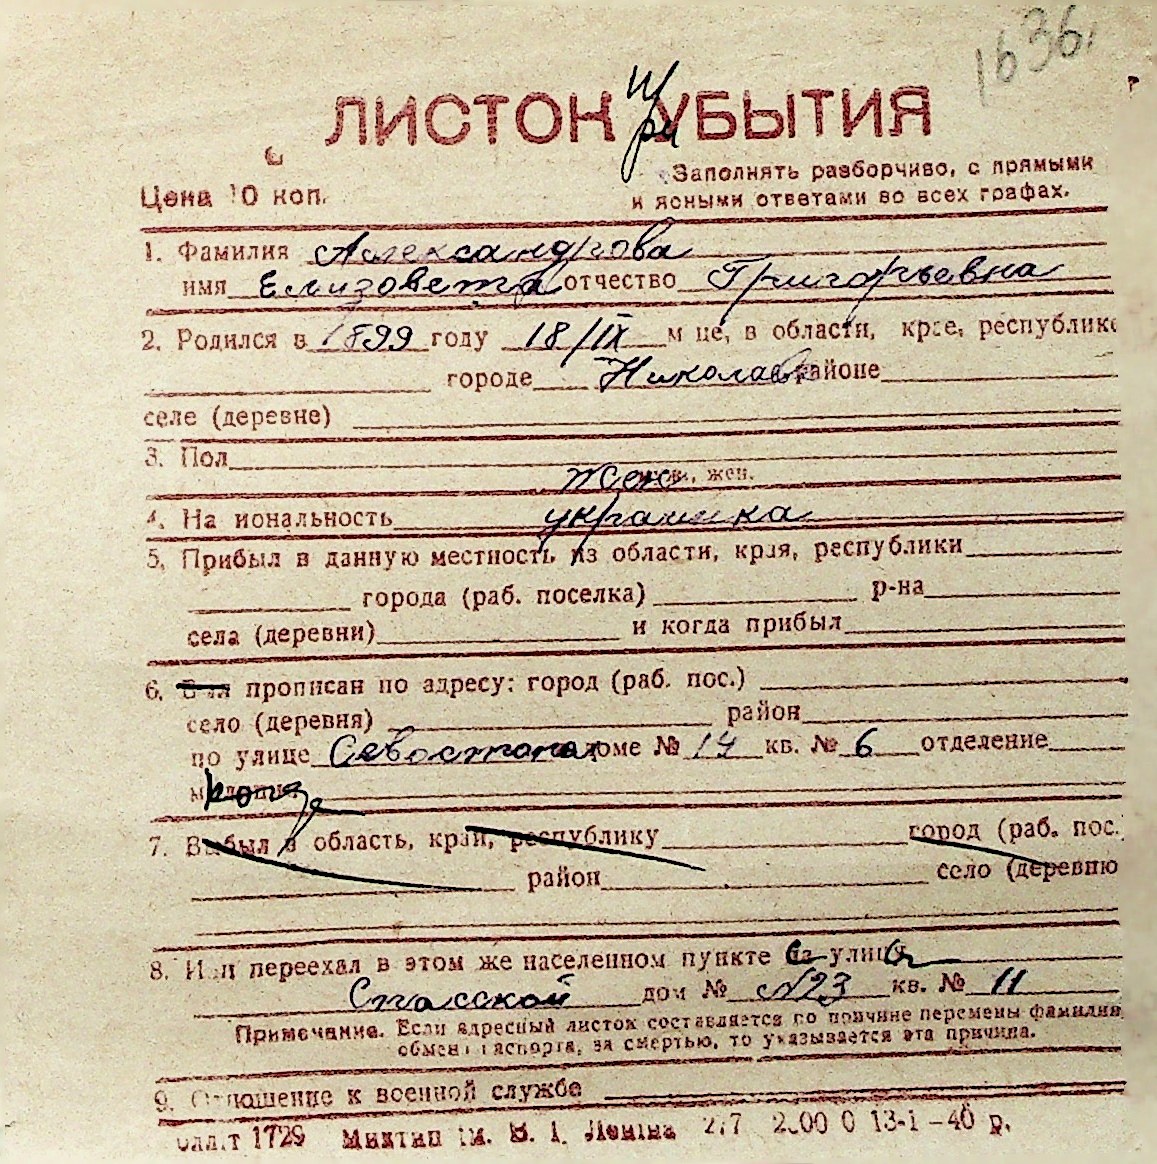 1636.
ЛИСТОК при УБЫТИЯ
Заполнять разборчиво, с прямыми
Цена 10 коп. и ясными ответами во всех графах.
1. Фамилия Александрова
имя Елизовета отчество Григорьевна
2. Родился в 1899 году 18/IX м це, в области, крае, республике
городе Николаев районе
селе (деревне)
3. Пол
жен , жен.
4. На иональность украинка
5. Прибыл в данную местность из области, края, республики
города (раб. поселка) р-на
села (деревни) и когда прибыл
6. прописан по адресу: город (раб. пос.)
село (деревня) район
по улице Севостопол доме № 14 кв. № 6 отделение
7. Выбыл в область, край, республику город (раб. пос.
район село (деревню
8. Или переехал в этом же населенном пункте с улицы
Спасской дом № 23 кв. № 11
Примечание. Если адресный листок составляется по причине перемены фамилии,
обмена паспорта, за смертью, то указывается эта причина.
9. Отношение к военной службе
1729 им. В. І. Леніна 13-1-40 р.